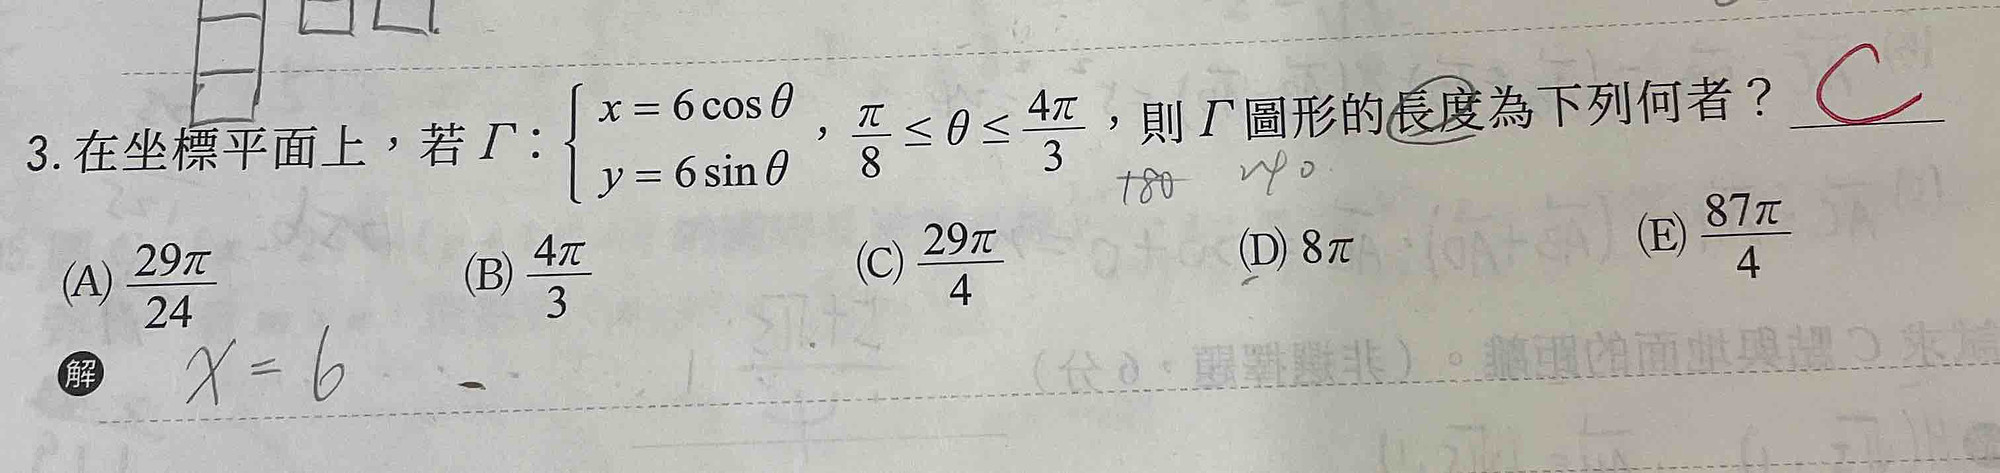 3. 在坐標平面上，若 Γ：{ x = 6 cos θ, y = 6 sin θ ，π/8 ≤ θ ≤ 4π/3，則 Γ 圖形的長度為下列何者？ C
180 240
(A) 29π/24 (B) 4π/3 (C) 29π/4 (D) 8π (E) 87π/4
解 x = 6